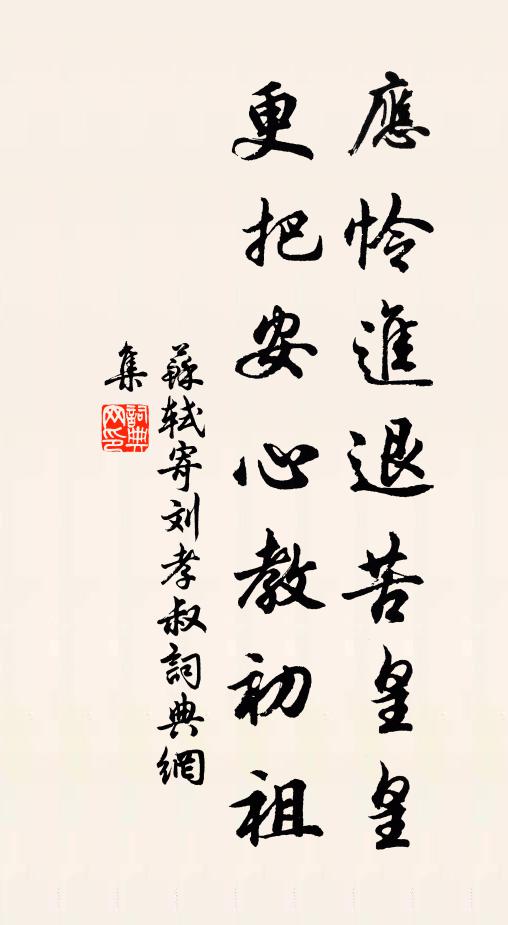 應怜進退苦皇皇
更把安心教初祖
蘇轼寄刘孝叔詞典網
集
詞典
网印